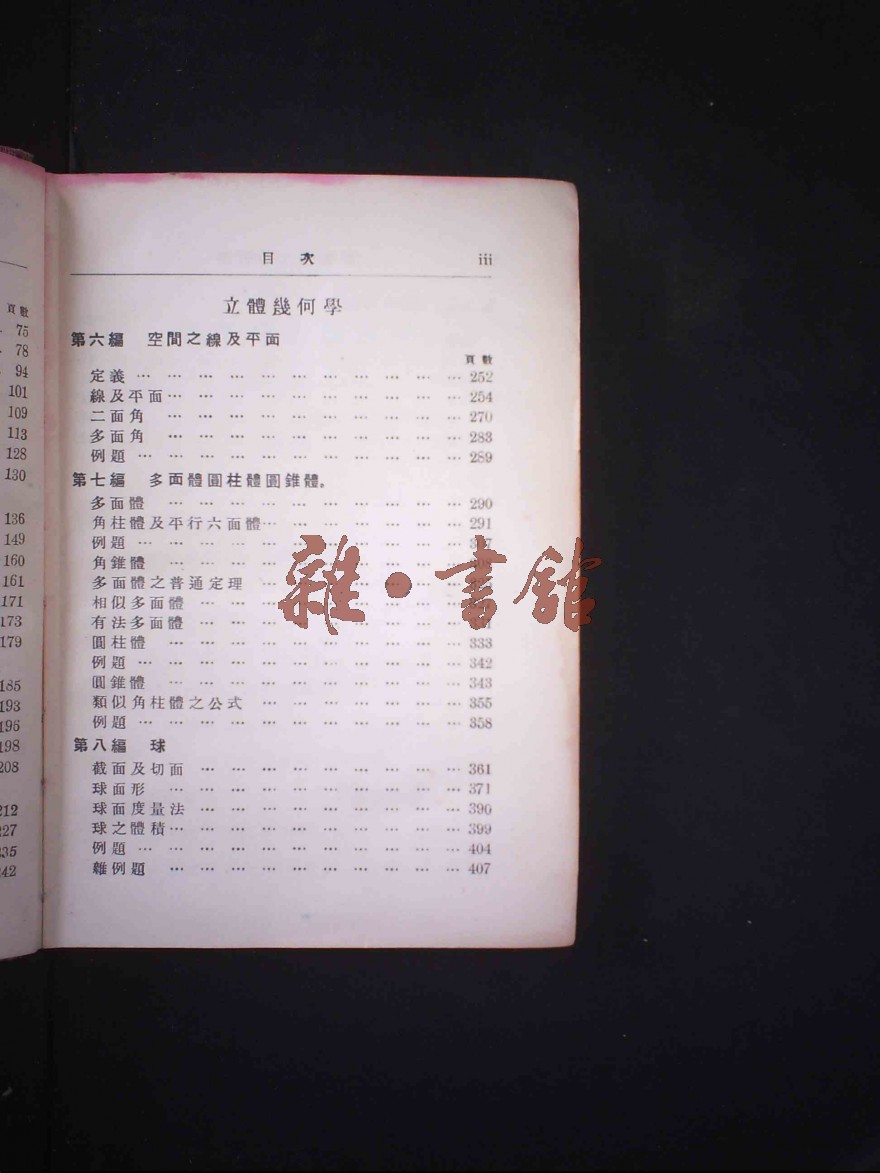 頁數
75
78
94
101
109
113
128
130
136
149
160
161
171
173
179
185
193
195
198
208
212
227
235
242
目次 iii
立體幾何學
第六編 空間之線及平面
頁數
定義 … … … … … … … … … … … 252
線及平面 … … … … … … … … … … 254
二面角 … … … … … … … … … … 270
多面角 … … … … … … … … … … 283
例題 … … … … … … … … … … … 289
第七編 多面體圓柱體圓錐體。
多面體 … … … … … … … … … … 290
角柱體及平行六面體 … … … … … … … 291
例題 … … … … … … … … … … …
角錐體 … … … … … … … … … …
多面體之普通定理 … … … … … … …
相似多面體 … … … … … … … … …
有法多面體 … … … … … … … … …
圓柱體 … … … … … … … … … … 333
例題 … … … … … … … … … … … 342
圓錐體 … … … … … … … … … … 343
類似角柱體之公式 … … … … … … … 355
例題 … … … … … … … … … … … 358
第八編 球
截面及切面 … … … … … … … … … 361
球面形 … … … … … … … … … … 371
球面度量法 … … … … … … … … … 390
球之體積 … … … … … … … … … … 399
例題 … … … … … … … … … … … 404
雜例題 … … … … … … … … … … 407
雜·書館